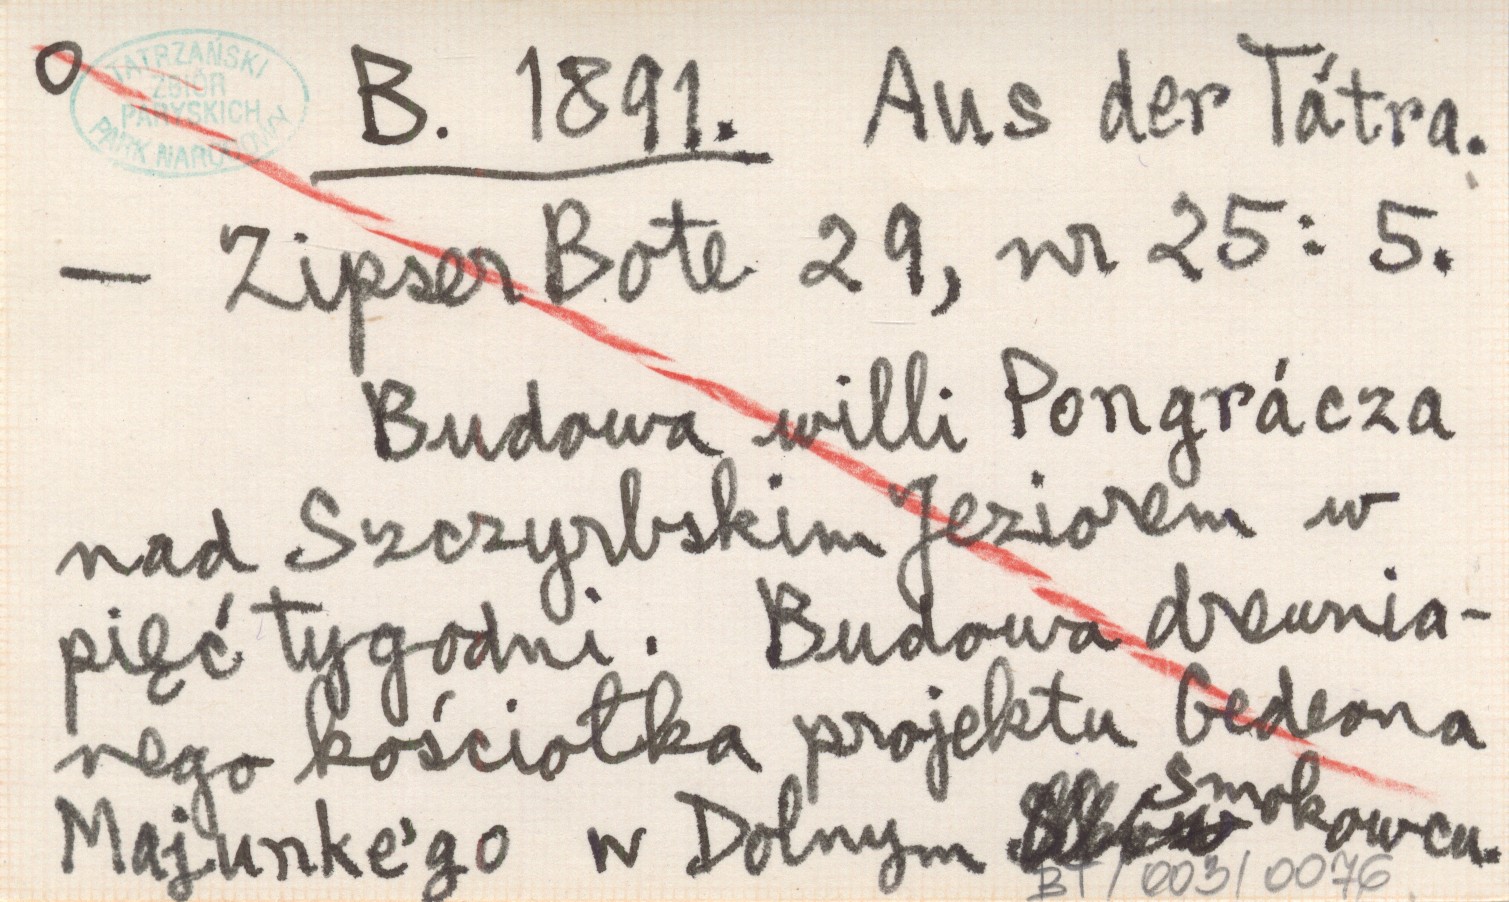 O B. 1891. Aus der Tátra.
TATRZAŃSKI
ZBIÓR
PARYSKICH
PARK NARODOWY
— Zipser Bote 29, nr 25: 5.
Budowa willi Pongrácza
nad Szczyrbskim Jeziorem w
pięć tygodni. Budowa drewnia-
nego kościołka projektu Gedeona
Majunke'go w Dolnym Smokowcu.
BT/003/0076